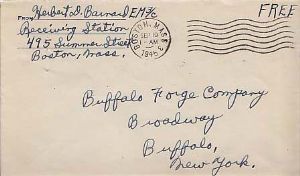 FROM Herbert D. Barnard EM3/c
Receiving Station
495 Summer Street
Boston, Mass.
FREE
BOSTON, MASS.
SEP 19
AM
1945
Buffalo Forge Company
Broadway
Buffalo,
New York.